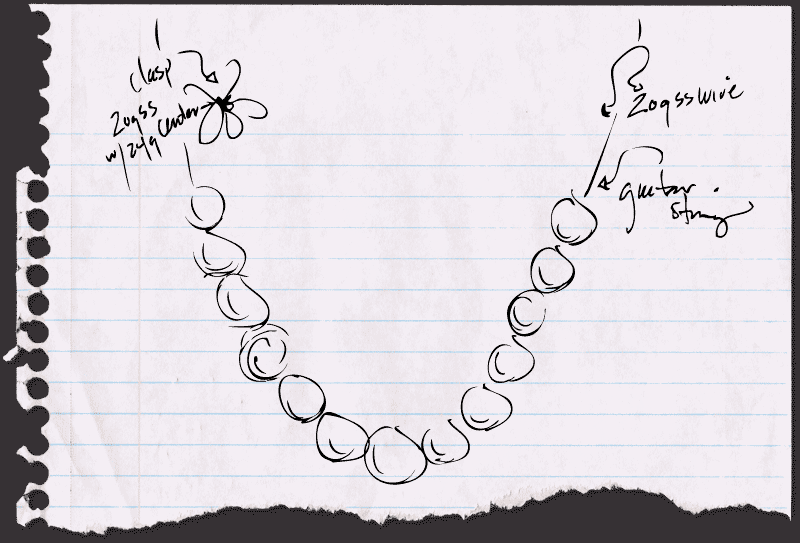 clasp
20gss
w/24g Center
20gss wire
guitar
string